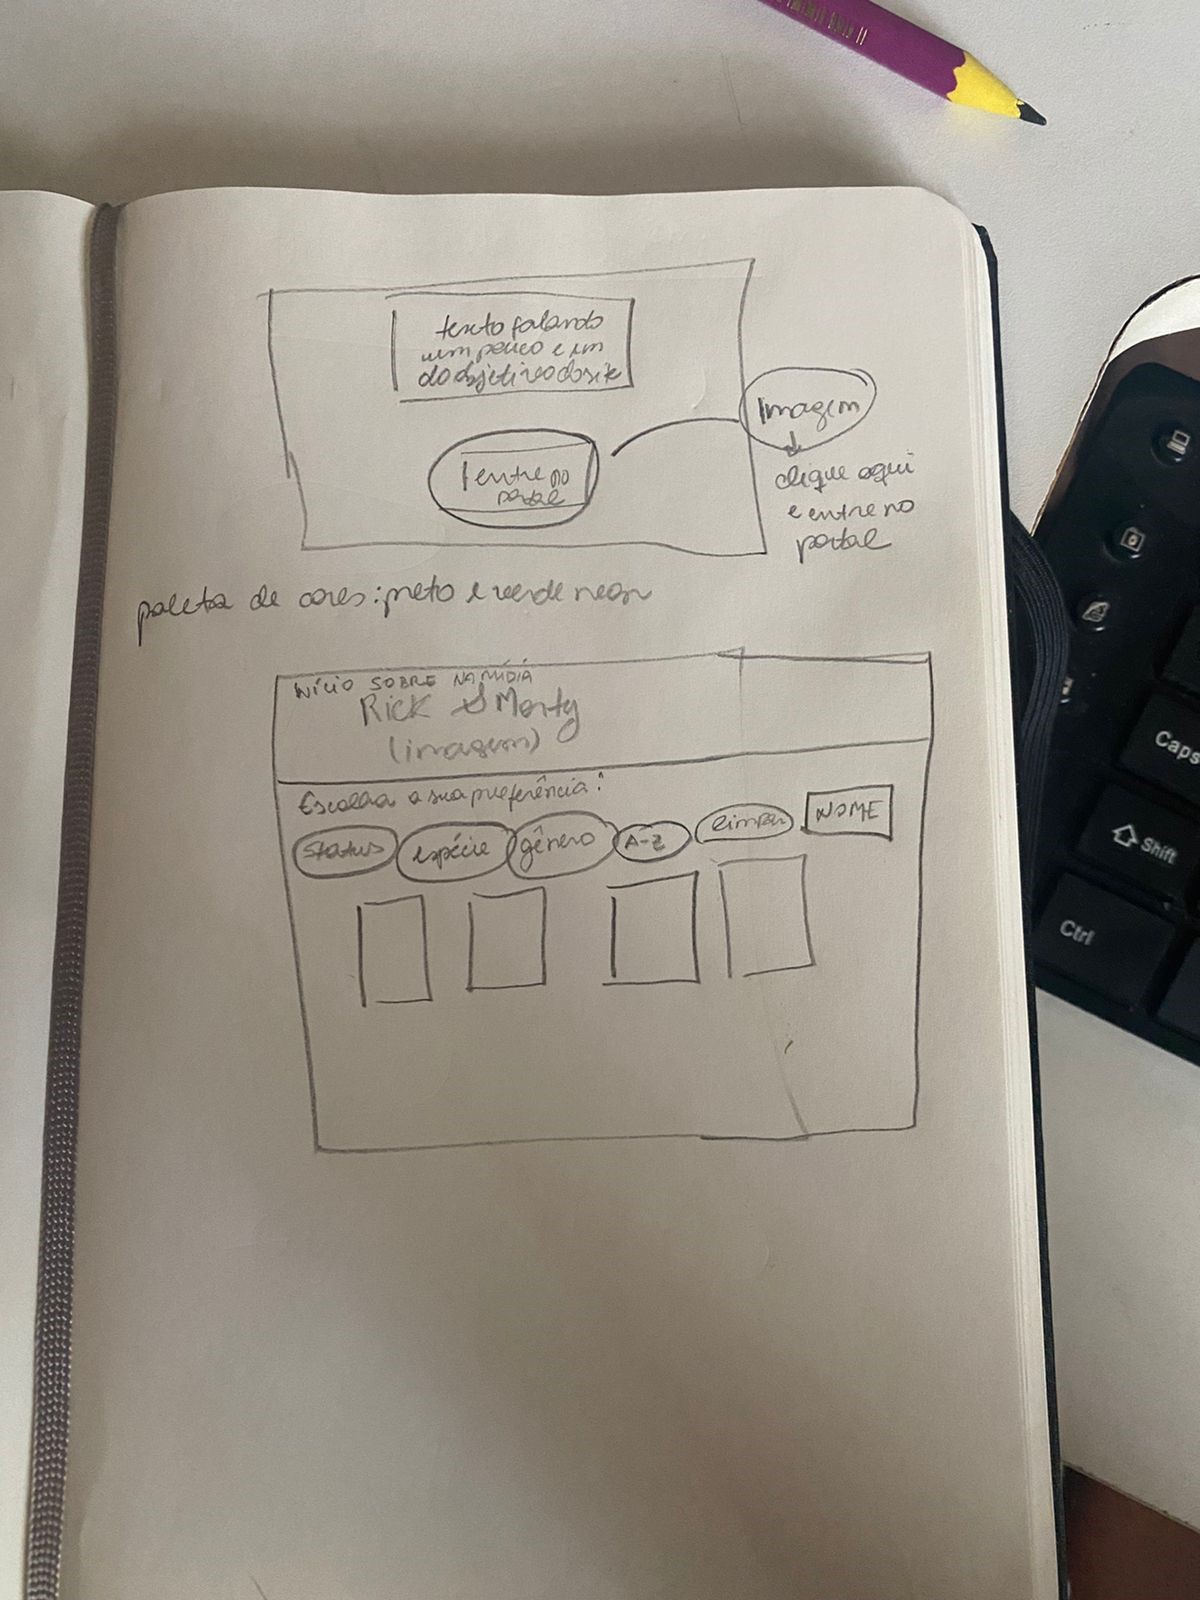 texto falando
um pouco e um
do objetivo do site
entre no
portal
Imagem
clique aqui
e entre no
portal
paleta de cores: preto e verde neon
INÍCIO SOBRE NA MÍDIA
Rick & Morty
(imagem)
Escolha a sua preferência:
Status espécie gênero A-Z limpar NOME
Caps
Shift
Ctrl